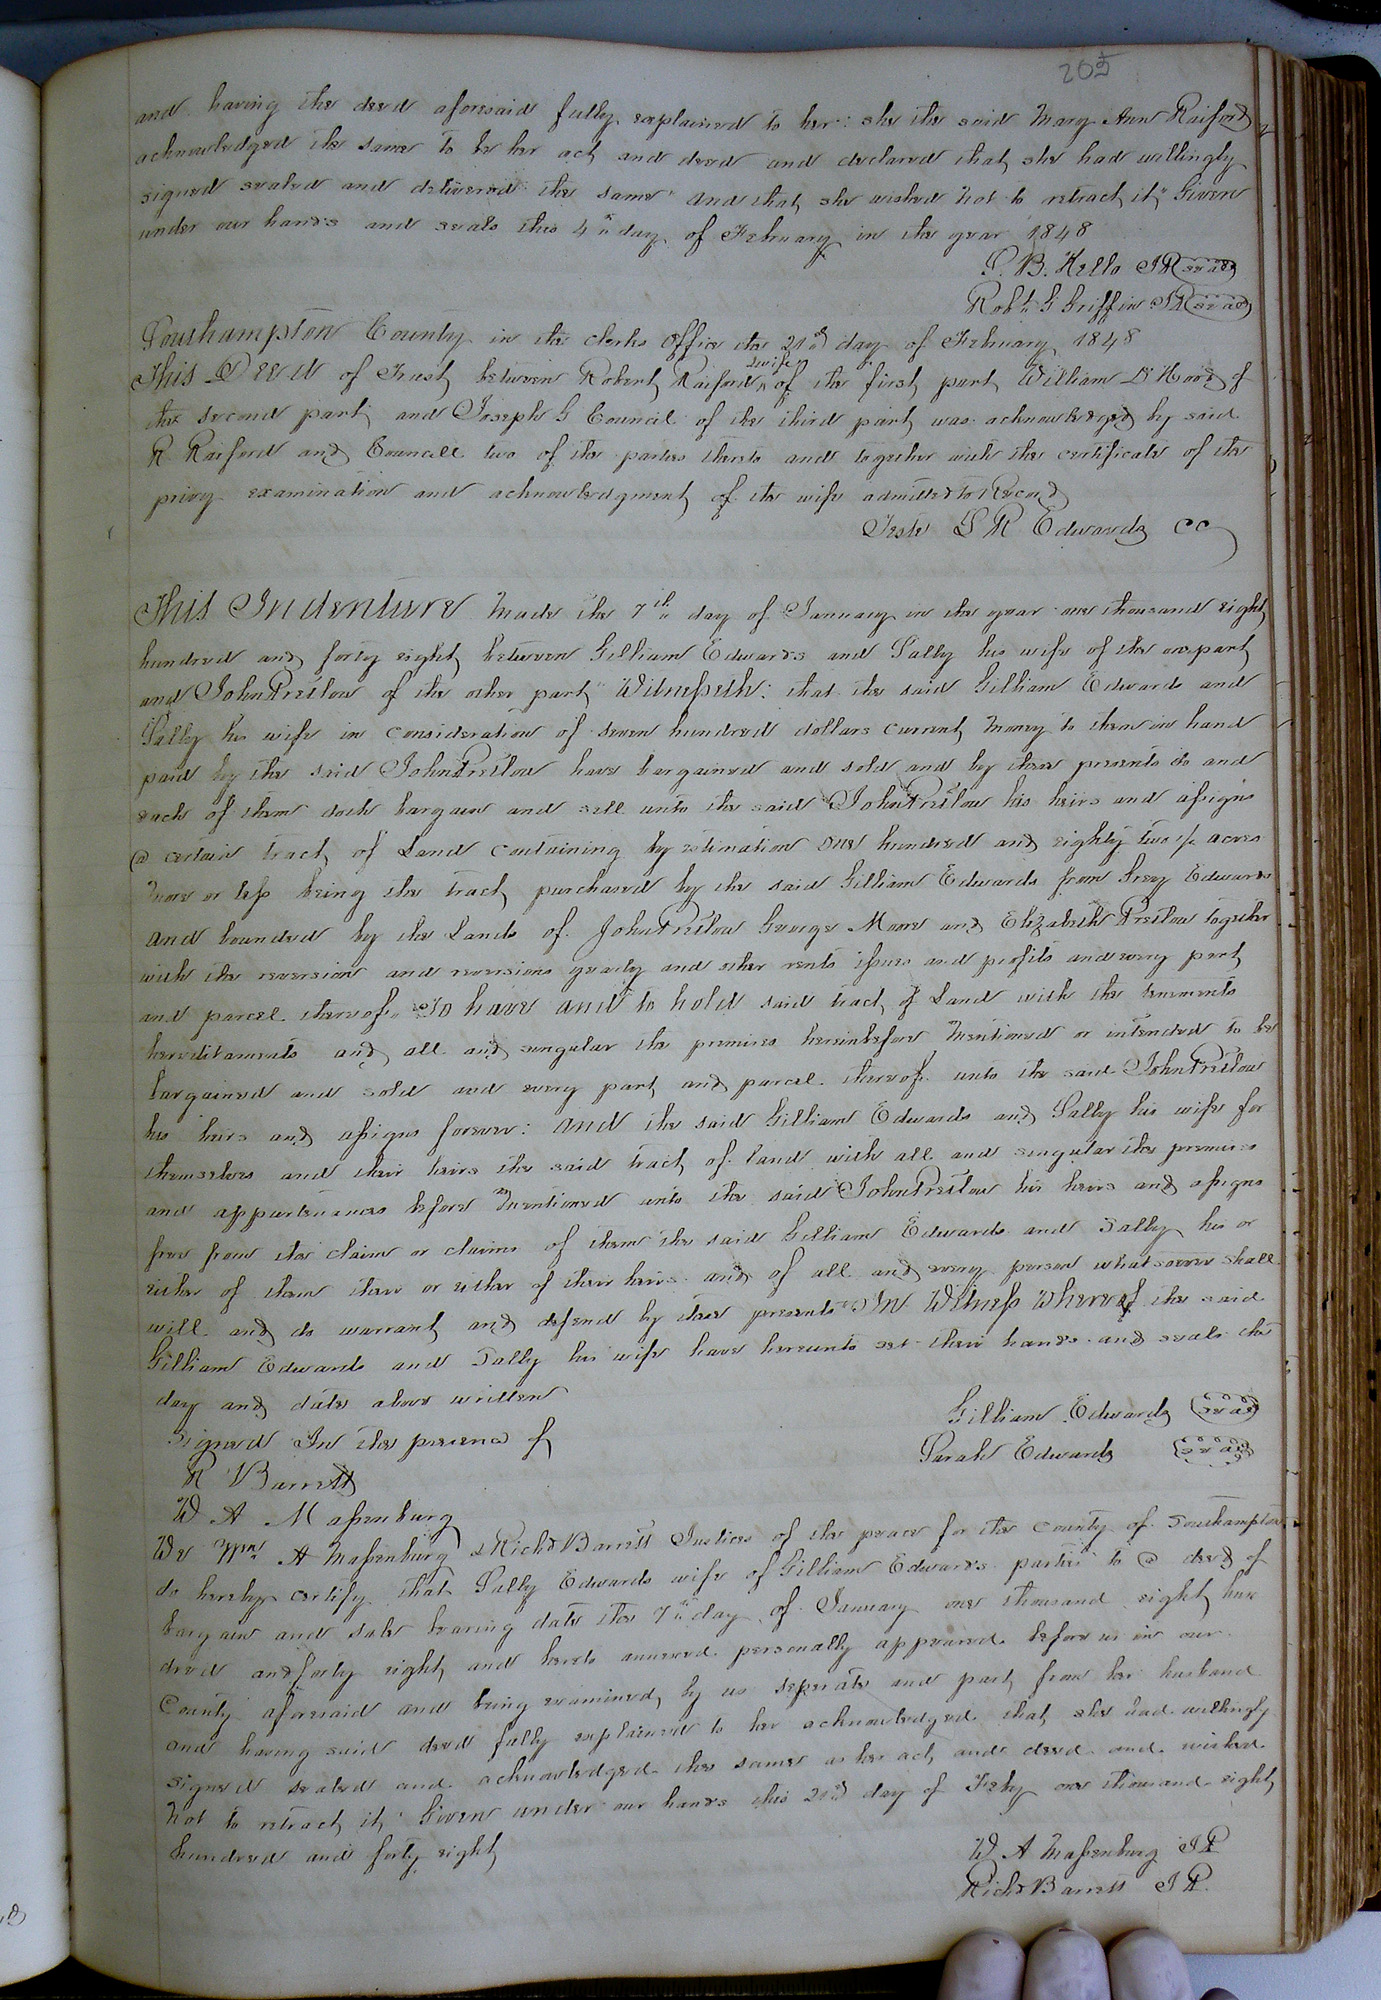 205
and having the deed aforesaid fully explained to her: she the said Mary Ann Raiford
acknowledged the same to be her act and deed and declared that she had willingly
signed sealed and delivered the same" and that she wished not to retract it," Given
under our hands and seals this 4th day of February in the year 1848
B. Kello JP (seal)
Robt G Griffin JP (seal)
Southampton County in the clerks office the 21st day of February 1848
This Deed of Trust between Robert Raiford ^&wife of the first part William D Hood of
the second part and Joseph G Council of the third part was acknowledged by said
R Raiford and Councill two of the parties thereto and together with the certificate of the
privy examination and acknowledgment of the wife admitted to Record
Teste L R Edwards CC
This Indenture Made the 7th day of January in the year one thousand eight
hundred and forty eight between Gilliam Edwards and Sally his wife of the one part
and John Pretlow of the other part" Witnesseth: that the said Gilliam Edwards and
Sally his wife in consideration of seven hundred dollars current money to them in hand
paid by the said John Pretlow have bargained and sold and by these presents do and
each of them doth bargain and sell unto the said John Pretlow his heirs and assigns
a certain tract of Land containing by estimation one hundred and eighty two ½ acres
more or less being the tract purchased by the said Gilliam Edwards from Irey Edwards
and bounded by the Lands of John Pretlow George Moore and Elizabeth Pretlow together
with the reversion and reversions yearly and other rents issues and profits and every part
and parcel thereof" To have and to hold said tract of Land with the tenements
hereditaments and all and singular the premises hereinbefore mentioned or intended to be
bargained and sold and every part and parcel thereof unto the said John Pretlow
his heirs and assigns forever: and the said Gilliam Edwards and Sally his wife for
themselves and their heirs the said tract of land with all and singular the premises
and appurtenances before mentioned unto the said John Pretlow his heirs and assigns
free from the claim or claims of them the said Gilliam Edwards and Sally his or
either of them their or either of their heirs and of all and every person whatsoever shall
will and do warrant and defend by these presents" In Witness Whereof the said
Gilliam Edwards and Sally his wife have hereunto set their hands and seals the
day and date above written
Gilliam Edwards (seal)
Signed In the presence of
Sarah Edwards (seal)
R Barrett
W A Massenburg
We Wm A Massenburg & Richd Barrett Justices of the peace for the County of Southampton
do hereby certify that Sally Edwards wife of Gilliam Edwards parties to a deed of
bargain and sale bearing date the 7th day of January one thousand eight hun
dred and forty eight and hereto annexed personally appeared before us in our
County aforesaid and being examined by us seperate and part from her husband
and having said deed fully explained to her acknowledged that she had willingly
signed sealed and acknowledged the same as her act and deed and wished
not to retract it" Given under our hands this 21st day of Feby one thousand eight
hundred and forty eight
W A Massenburg JP
Richd Barrett JP.